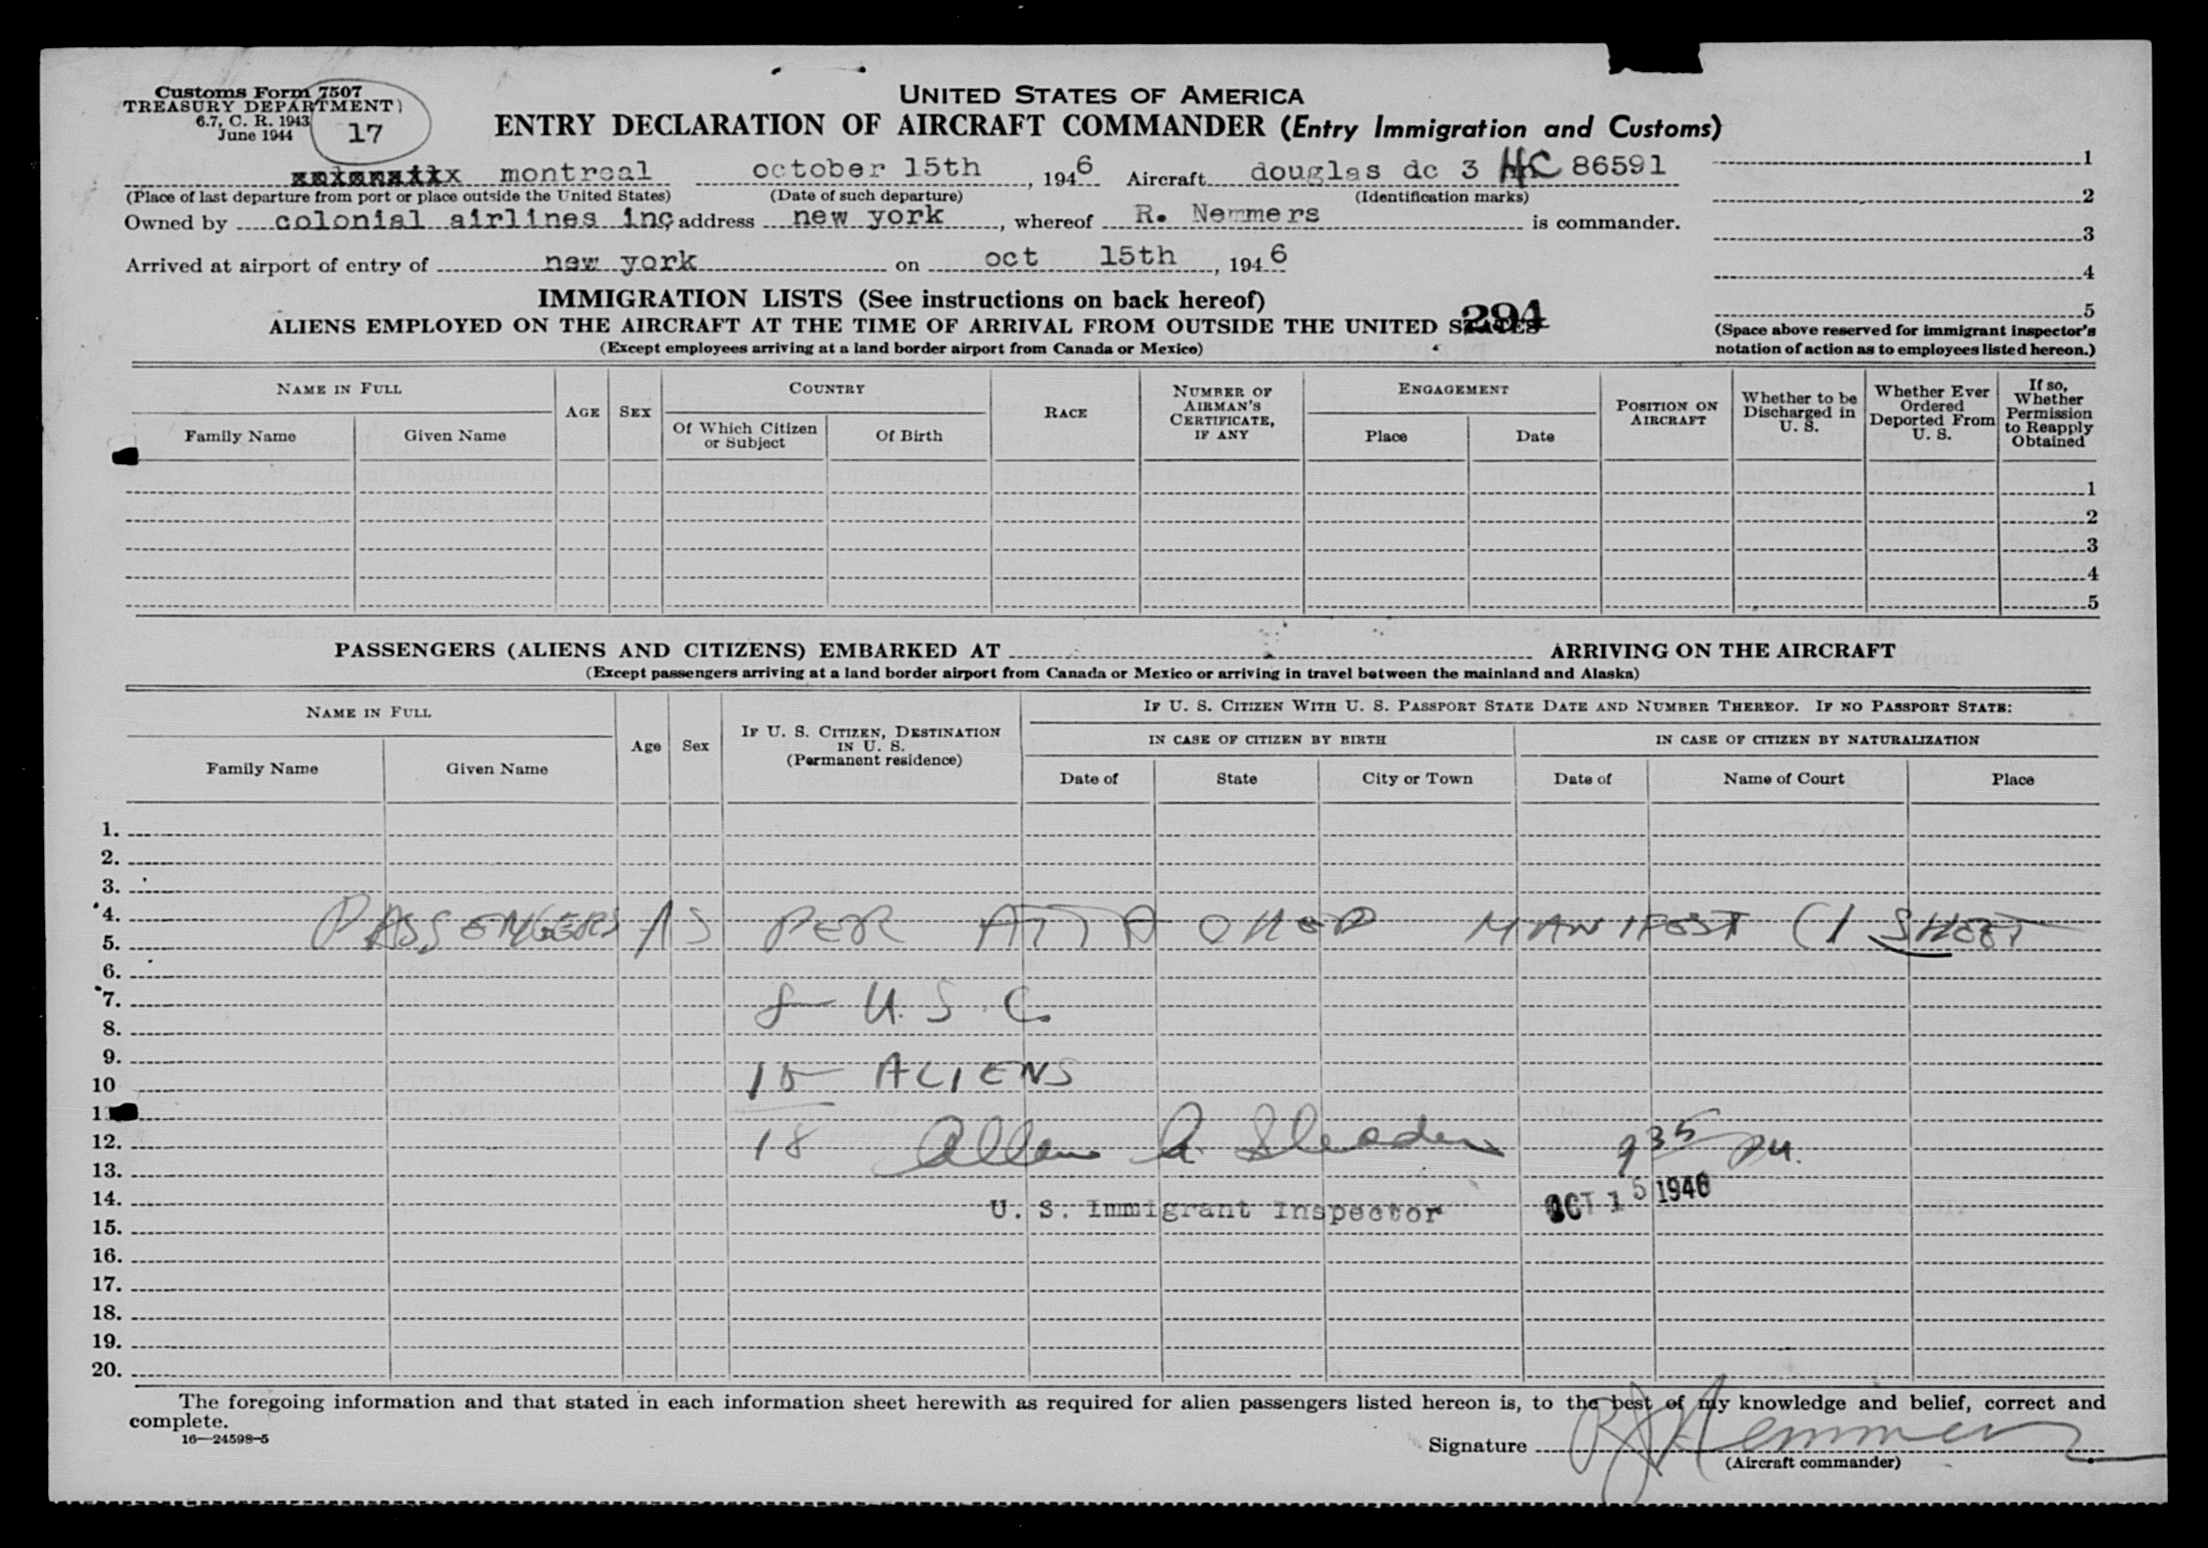 Customs Form 7507
TREASURY DEPARTMENT
6.7, C. R. 1943
June 1944
17
UNITED STATES OF AMERICA
ENTRY DECLARATION OF AIRCRAFT COMMANDER (Entry Immigration and Customs)
montreal october 15th, 1946 Aircraft douglas dc 3 NC 86591
(Place of last departure from port or place outside the United States) (Date of such departure) (Identification marks)
Owned by colonial airlines inc, address new york, whereof R. Nemmers is commander.
Arrived at airport of entry of new york on oct 15th, 1946
1
2
3
4
5
(Space above reserved for immigrant inspector's notation of action as to employees listed hereon.)
IMMIGRATION LISTS (See instructions on back hereof)
294
ALIENS EMPLOYED ON THE AIRCRAFT AT THE TIME OF ARRIVAL FROM OUTSIDE THE UNITED STATES
(Except employees arriving at a land border airport from Canada or Mexico)
NAME IN FULL
Family Name Given Name
AGE SEX
COUNTRY
Of Which Citizen or Subject Of Birth
RACE
NUMBER OF AIRMAN'S CERTIFICATE, IF ANY
ENGAGEMENT
Place Date
POSITION ON AIRCRAFT
Whether to be Discharged in U. S.
Whether Ever Ordered Deported From U. S.
If so, Whether Permission to Reapply Obtained
1
2
3
4
5
PASSENGERS (ALIENS AND CITIZENS) EMBARKED AT ARRIVING ON THE AIRCRAFT
(Except passengers arriving at a land border airport from Canada or Mexico or arriving in travel between the mainland and Alaska)
NAME IN FULL
Family Name Given Name
Age Sex
IF U. S. CITIZEN, DESTINATION IN U. S.
(Permanent residence)
IF U. S. CITIZEN WITH U. S. PASSPORT STATE DATE AND NUMBER THEREOF. IF NO PASSPORT STATE:
IN CASE OF CITIZEN BY BIRTH IN CASE OF CITIZEN BY NATURALIZATION
Date of State City or Town Date of Name of Court Place
1.
2.
3.
4.
PASSENGERS AS PER ATTACHED MANIFEST (1 SHEET
5.
6.
7. U.S.C.
8.
9.
10 ALIENS
11
12. 18 Allan A. 9 35 PM.
13.
14. U. S. Immigrant Inspector OCT 15 1946
15.
16.
17.
18.
19.
20.
The foregoing information and that stated in each information sheet herewith as required for alien passengers listed hereon is, to the best of my knowledge and belief, correct and
complete.
16—24598-5
Signature R J Nemmers
(Aircraft commander)